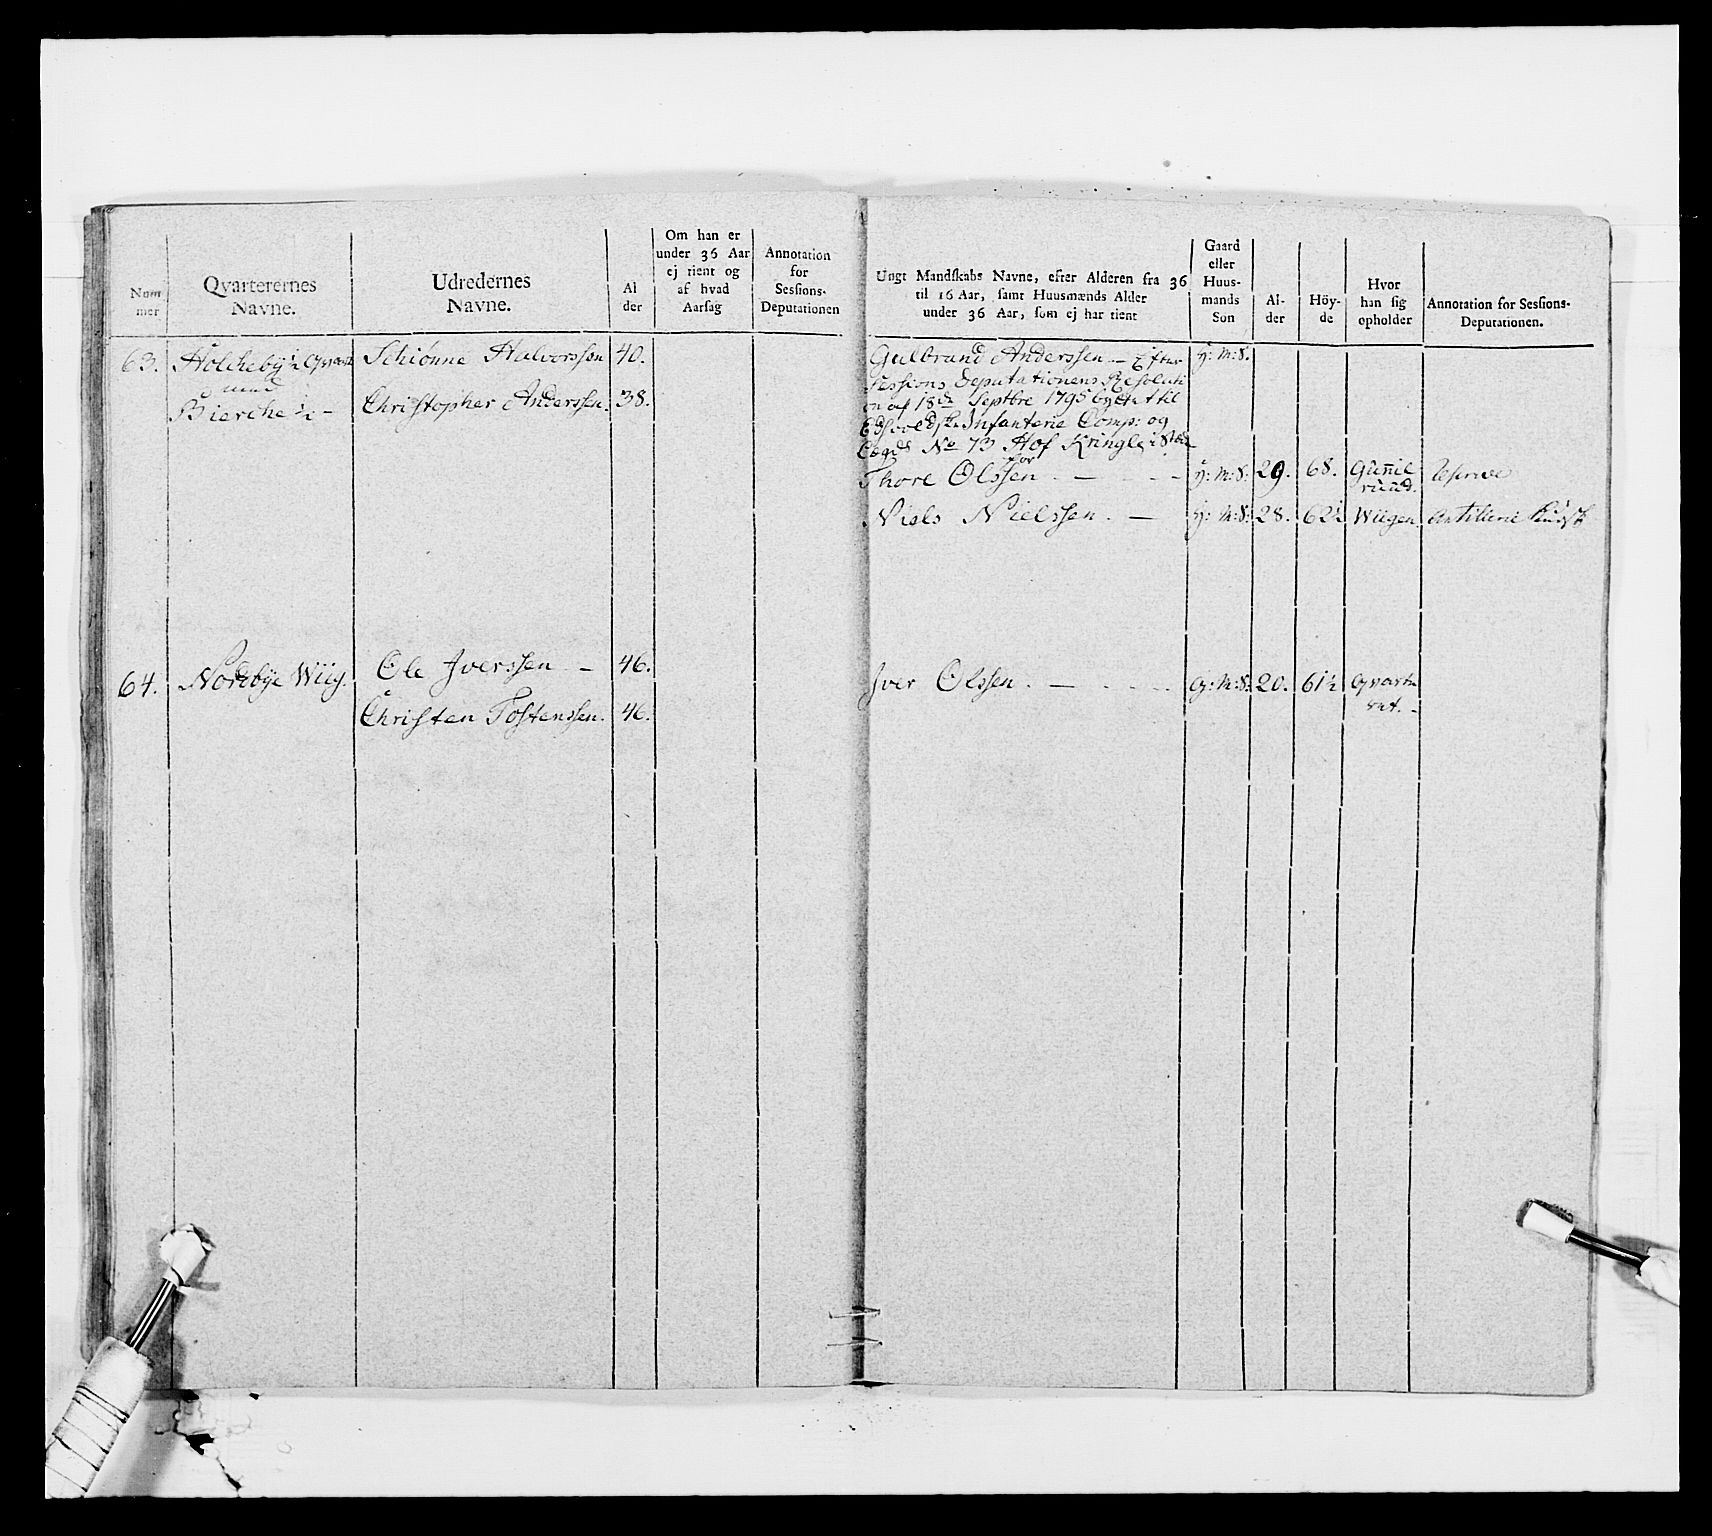 Num
mer
Qvarterernes
Navne.
Udredernes
Navne.
Al
der
Om han er
under 36 Aar
ej tient og
af hvad
Aarsag
Annotation
for
Sessions-
Deputationen
63. Holchebÿ ½ Qvart
med
Bierche ½ –
Schiønne Halvorssøn 40.
Christopher Anderssen. 38.
64. Nordbÿe Wiig.
Ole Iverssen – 46.
Christen Tostenssen. 46.
Ungt Mandskabs Navne, efter Alderen fra 36
til 16 Aar, samt Huusmænds Alder
under 36 Aar, som ej har tient
Gaard
eller
Huus-
mands
Son
Al-
der
Höy-
de
Hvor
han sig
opholder
Annotation for Sessions-
Deputationen.
Gulbrand Anderssen – Efter ÿ: M: S.
Sessions Deputationens Resoluti
on af 18de Septbre 1795 byttet til
Edsvoldske Infanterie Comp: og
Lægds No 73 Hof Kringler i Sted
for
Thore Olssen. – ÿ: M: S: 29. 68. Gunnil
ruud. Reserve
Niels Nielssen. – ÿ: M: S: 28. 62½ Wiigen. Artillerie Kudsk
Iver Olssen. – G: M: S. 20. 61½ Qvarte
ret. –